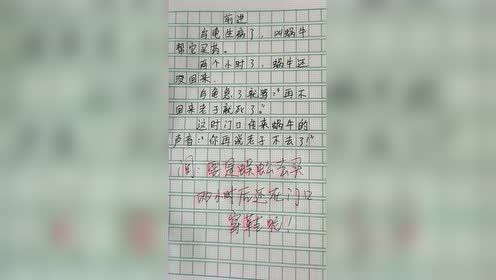 前进
乌龟生病了，叫蜗牛
帮它买药。
两个小时了，蜗牛还
没回来。
乌龟急了就骂：“再不
回来老子就死了。”
这时门口传来蜗牛的
声音：“你再说老子不去了！”
阅：要是蜈蚣去买
两小时后还在门口
穿鞋呢！